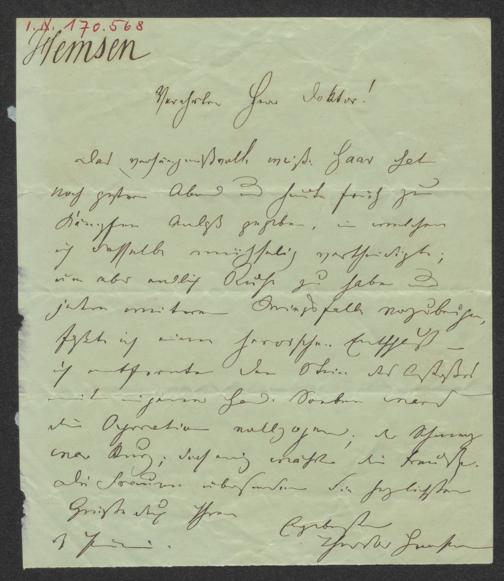 I.N. 170.568
Hemsen
Verehrter Herr Doktor!
Das verhängnißvolle weiße Haar hat
noch gestern Abend u heute früh zu
Kämpfen Anlaß gegeben, in welchen
ich dasselbe muthselig vertheidigte;
um aber endlich Ruhe zu haben u
jedem weiteren Kriegsfalle vorzubeugen,
faßte ich einen heroischen Entschluß –
ich entfernte den Stein des Anstoßes
mit eigener Hand. Soeben ward
die Operation vollzogen; der Schmerz
war kurz, doch ewig währt die Freude.
Die Frauen übersenden die herzlichsten
Grüße durch Ihren
Ergebensten
Theodor Hemsen